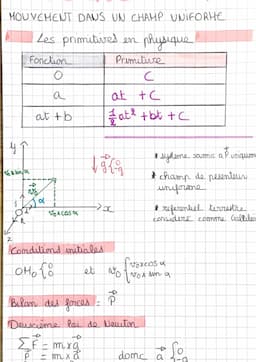 MOUVEMENT DANS UN CHAMP UNIFORME
Les primitives en physique
Fonction
Primitive
0
C
a
at + C
at + b
1/2 at² + bt + C
y
g { 0 -g
* système soumis a P uniquem
v₀ x sin α
* champ de pesanteur
uniforme
α
x
v₀ x cos α
* référentiel terrestre
considéré comme Galiléen
z
Conditions initiales
OM₀ { 0 0 et v₀ { v₀ x cos α v₀ x sin α
Bilan des forces = P
Deuxième loi de Newton
ΣF = m x a
P = m x a donc a { 0